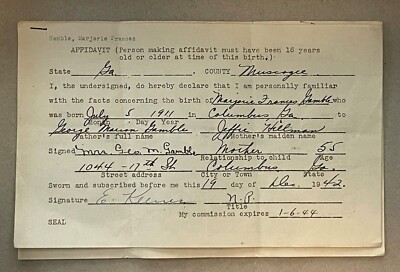 Gamble, Marjorie Frances
AFFIDAVIT (Person making affidavit must have been 16 years
old or older at time of this birth.)
State Ga. COUNTY Muscogee
I, the undersigned, do hereby declare that I am personally familiar
with the facts concerning the birth of Marjorie Frances Gamble who
was born July 5 1911 in Columbus Ga. to
Month Day Year
George Marion Gamble Effie Hillman
Father's full name Mother's maiden name
Signed Mrs. Geo. M. Gamble Mother 55
Relationship to child Age
1044-17th St. Columbus Ga.
Street address City or Town State
Sworn and subscribed before me this 19 day of Dec. 1942.
Signature E. N.P.
Title
My commission expires 1-6-44
SEAL